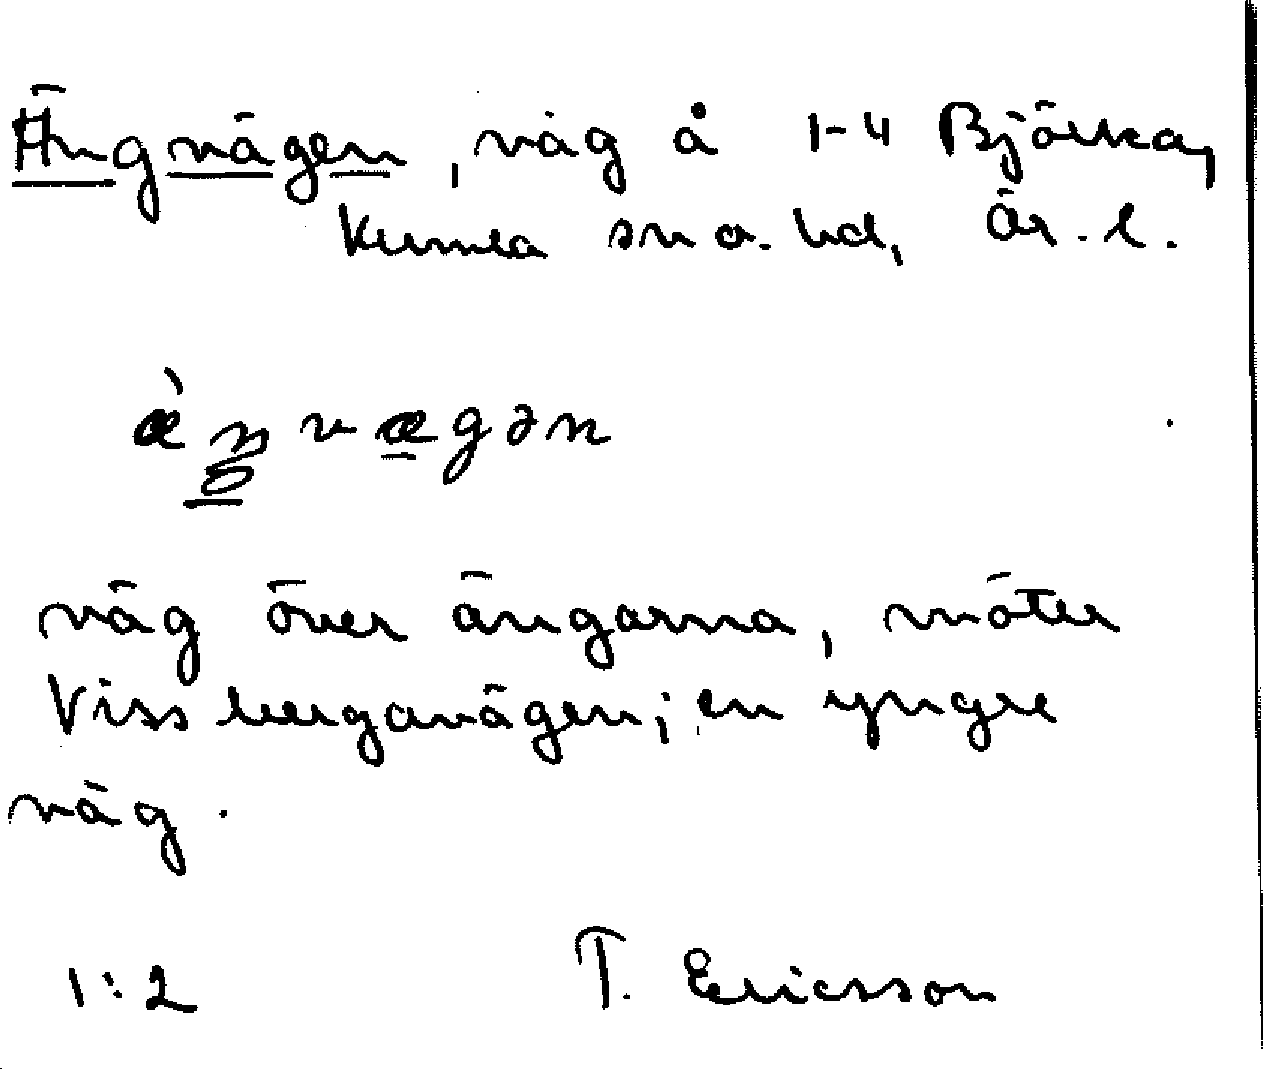 Ängvägen, väg å 1-4 Björka,
Kumla sn o. hd, Är. l.
väg över ängarna, möter
Vissbergavägen; en yngre
väg.
1:2 T. Ericsson